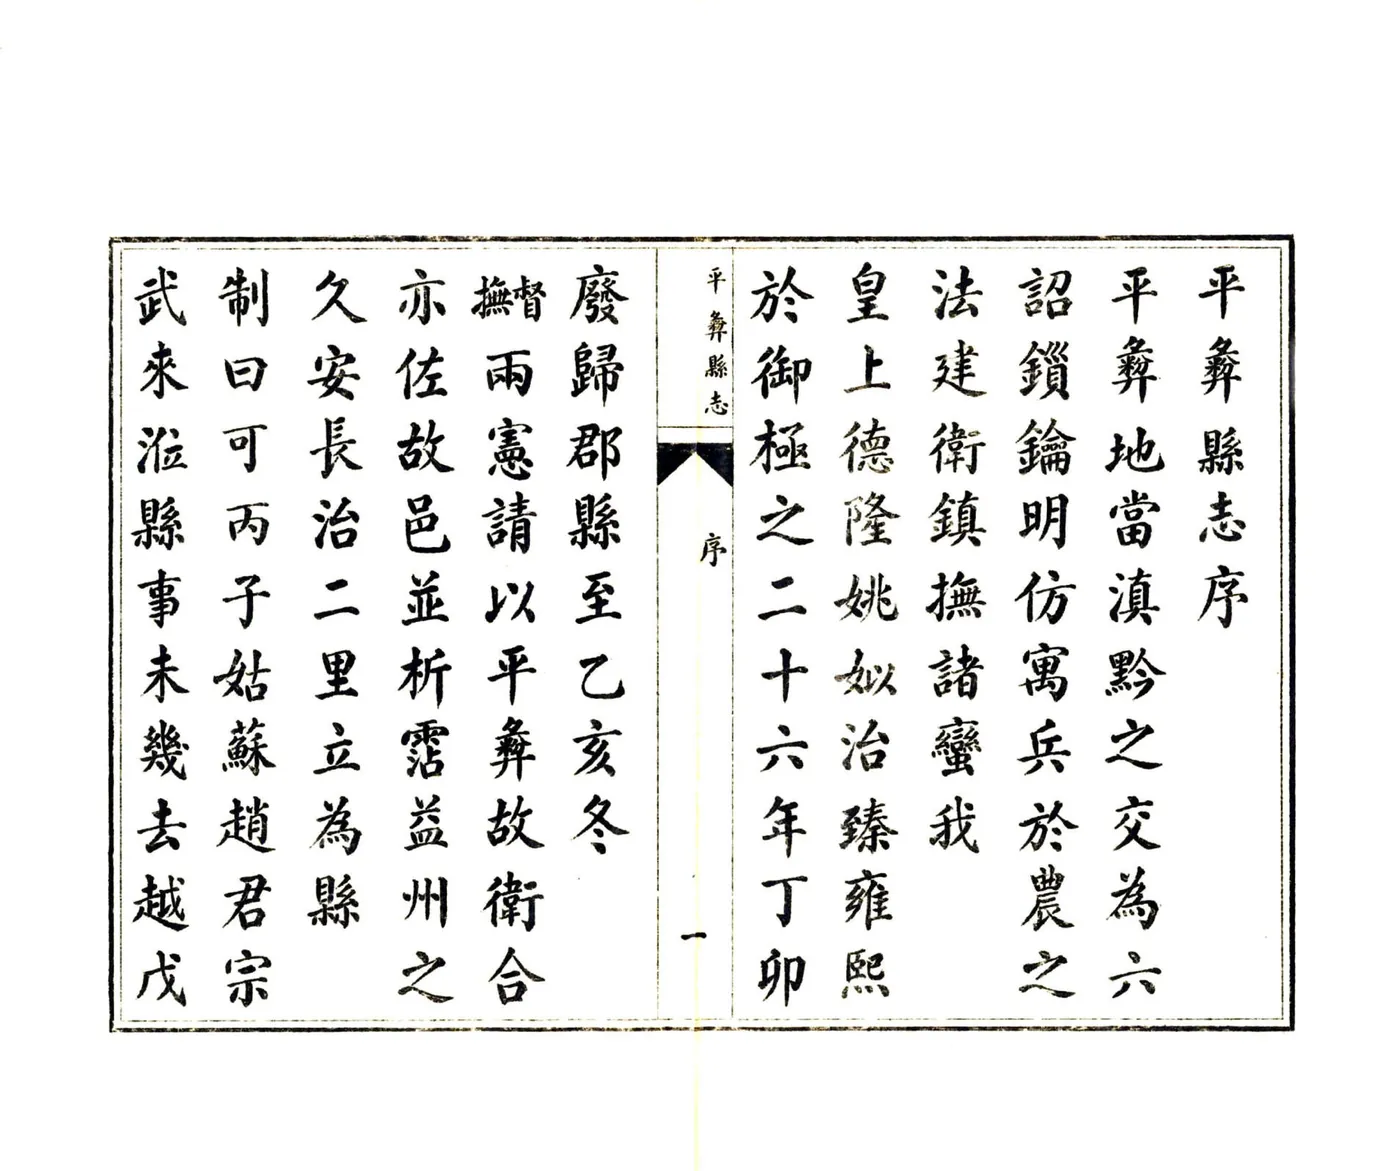 平彝縣志序
平彝地當滇黔之交為六
詔鎖鑰明仿寓兵於農之
法建衛鎮撫諸蠻我
皇上德隆姚姒治臻雍熙
於御極之二十六年丁卯
平彝縣志
序
一
廢歸郡縣至乙亥冬
督撫兩憲請以平彝故衛合
亦佐故邑並析霑益州之
久安長治二里立為縣
制曰可丙子姑蘇趙君宗
武來涖縣事未幾去越戊